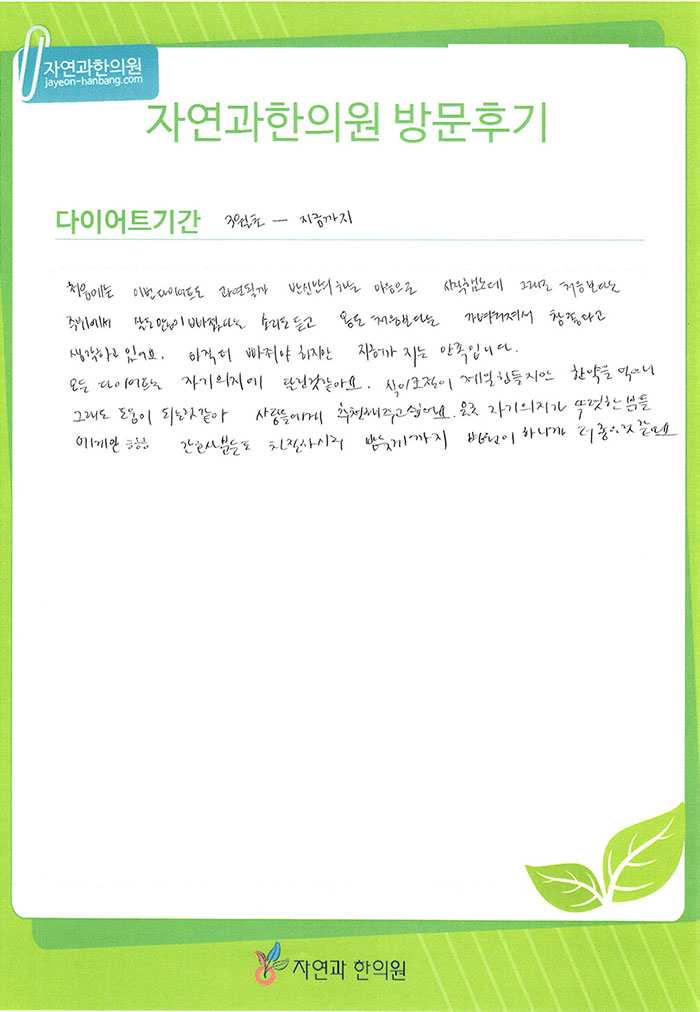 자연과한의원
jayeon-hanbang.com
자연과한의원 방문후기
다이어트기간 3월초 — 지금까지
처음에는 이번 다이어트도 과연될까 반신반의 하는 마음으로 시작했는데 그래도 처음보다는
주위에서 살도 많이 빠졌다는 소리도 듣고 몸도 처음보다는 가벼워져서 참 좋다고
생각하고 있어요. 아직 더 빠져야 하지만 지금까지는 만족입니다.
모든 다이어트는 자기의지에 달린것같아요. 식이조절이 제일 힘들지만 한약을 먹으니
그래도 도움이 되는것같아 사람들에게 추천해주고싶어요. 자기의지가 뚜렷한 분들
에게만 ㅎㅎㅎ 간호사분들도 친절하시고 밤늦게까지 병원이 하니까 더 좋은것 같아요
자연과 한의원